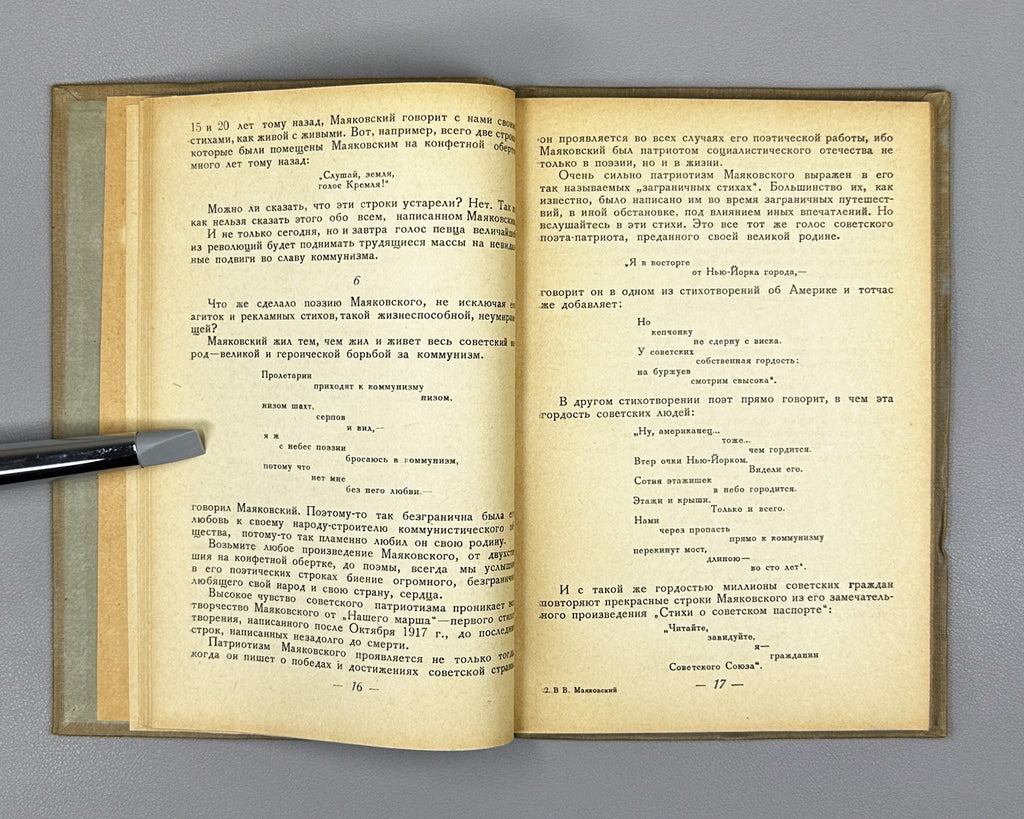 15 и 20 лет тому назад, Маяковский говорит с нами свои
стихами, как живой с живыми. Вот, например, всего две стро
которые были помещены Маяковским на конфетной оберт
много лет тому назад:
„Слушай, земля,
голос Кремля!“
Можно ли сказать, что эти строки устарели? Нет. Так
как нельзя сказать этого обо всем, написанном Маяковски
И не только сегодня, но и завтра голос певца величайше
из революций будет поднимать трудящиеся массы на невида
ные подвиги во славу коммунизма.
6
Что же сделало поэзию Маяковского, не исключая е
агиток и рекламных стихов, такой жизнеспособной, неумира
щей?
Маяковский жил тем, чем жил и живет весь советский
род—великой и героической борьбой за коммунизм.
Пролетарии
приходят к коммунизму
низом,
низом шахт,
серпов
и вил,—
я ж
с небес поэзии
бросаюсь в коммунизм,
потому что
нет мне
без него любви.—
говорил Маяковский. Поэтому-то так безгранична была е
любовь к своему народу-строителю коммунистического
щества, потому-то так пламенно любил он свою родину.
Возьмите любое произведение Маяковского, от двухсти
шия на конфетной обертке, до поэмы, всегда мы услыши
в его поэтических строках биение огромного, безгранич
любящего свой народ и свою страну, сердца.
Высокое чувство советского патриотизма проникает
творчество Маяковского от „Нашего марша“—первого стих
творения, написанного после Октября 1917 г., до последни
строк, написанных незадолго до смерти.
Патриотизм Маяковского проявляется не только тогда
когда он пишет о победах и достижениях советской стран
— 16 —
он проявляется во всех случаях его поэтической работы, ибо
Маяковский был патриотом социалистического отечества не
только в поэзии, но и в жизни.
Очень сильно патриотизм Маяковского выражен в его
так называемых „заграничных стихах“. Большинство их, как
известно, было написано им во время заграничных путешест-
вий, в иной обстановке, под влиянием иных впечатлений. Но
вслушайтесь в эти стихи. Это все тот же голос советского
поэта-патриота, преданного своей великой родине.
„Я в восторге
от Нью-Йорка города,—
говорит он в одном из стихотворений об Америке и тотчас
же добавляет:
Но
кепчонку
не сдерну с виска.
У советских
собственная гордость:
на буржуев
смотрим свысока“.
В другом стихотворении поэт прямо говорит, в чем эта
гордость советских людей:
„Ну, американец...
тоже...
чем гордится.
Втер очки Нью-Йорком.
Видели его.
Сотня этажишек
в небо городится.
Этажи и крыши.
Только и всего.
Нами
через пропасть
прямо к коммунизму
перекинут мост,
длиною—
во сто лет“.
И с такой же гордостью миллионы советских граждан
повторяют прекрасные строки Маяковского из его замечатель-
ного произведения „Стихи о советском паспорте“:
„Читайте,
завидуйте,
я—
гражданин
Советского Союза“.
2. В В. Маяковский
— 17 —